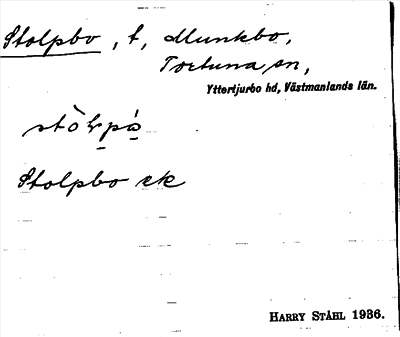 Stolpbo, t, Munkbo,
Tortuna sn,
Yttertjurbo hd, Västmanlands län.
Stolpbo ek
HARRY STÅHL 1936.